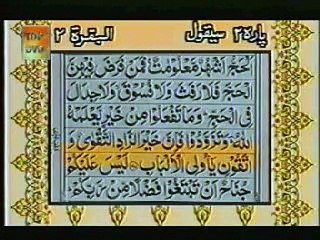 پاره ۲ سيقول
البقرة ۲
الحج اشهر معلومت فمن فرض فيهن
الحج فلا رفث ولا فسوق ولا جدال
فى الحج وما تفعلوا من خير يعلمه
الله وتزودوا فان خير الزاد التقوى و
اتقون ياولى الالباب ليس عليكم
جناح ان تبتغوا فضلا من ربكم